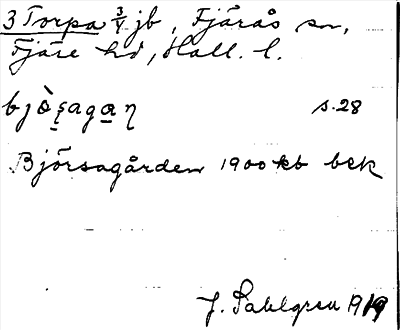 3 Torpa 3/4 jb, Fjärås sn,
Fjäre hd, Hall. l.
s. 28
Björsagården 1900 kb bek
J. Sahlgren 1919